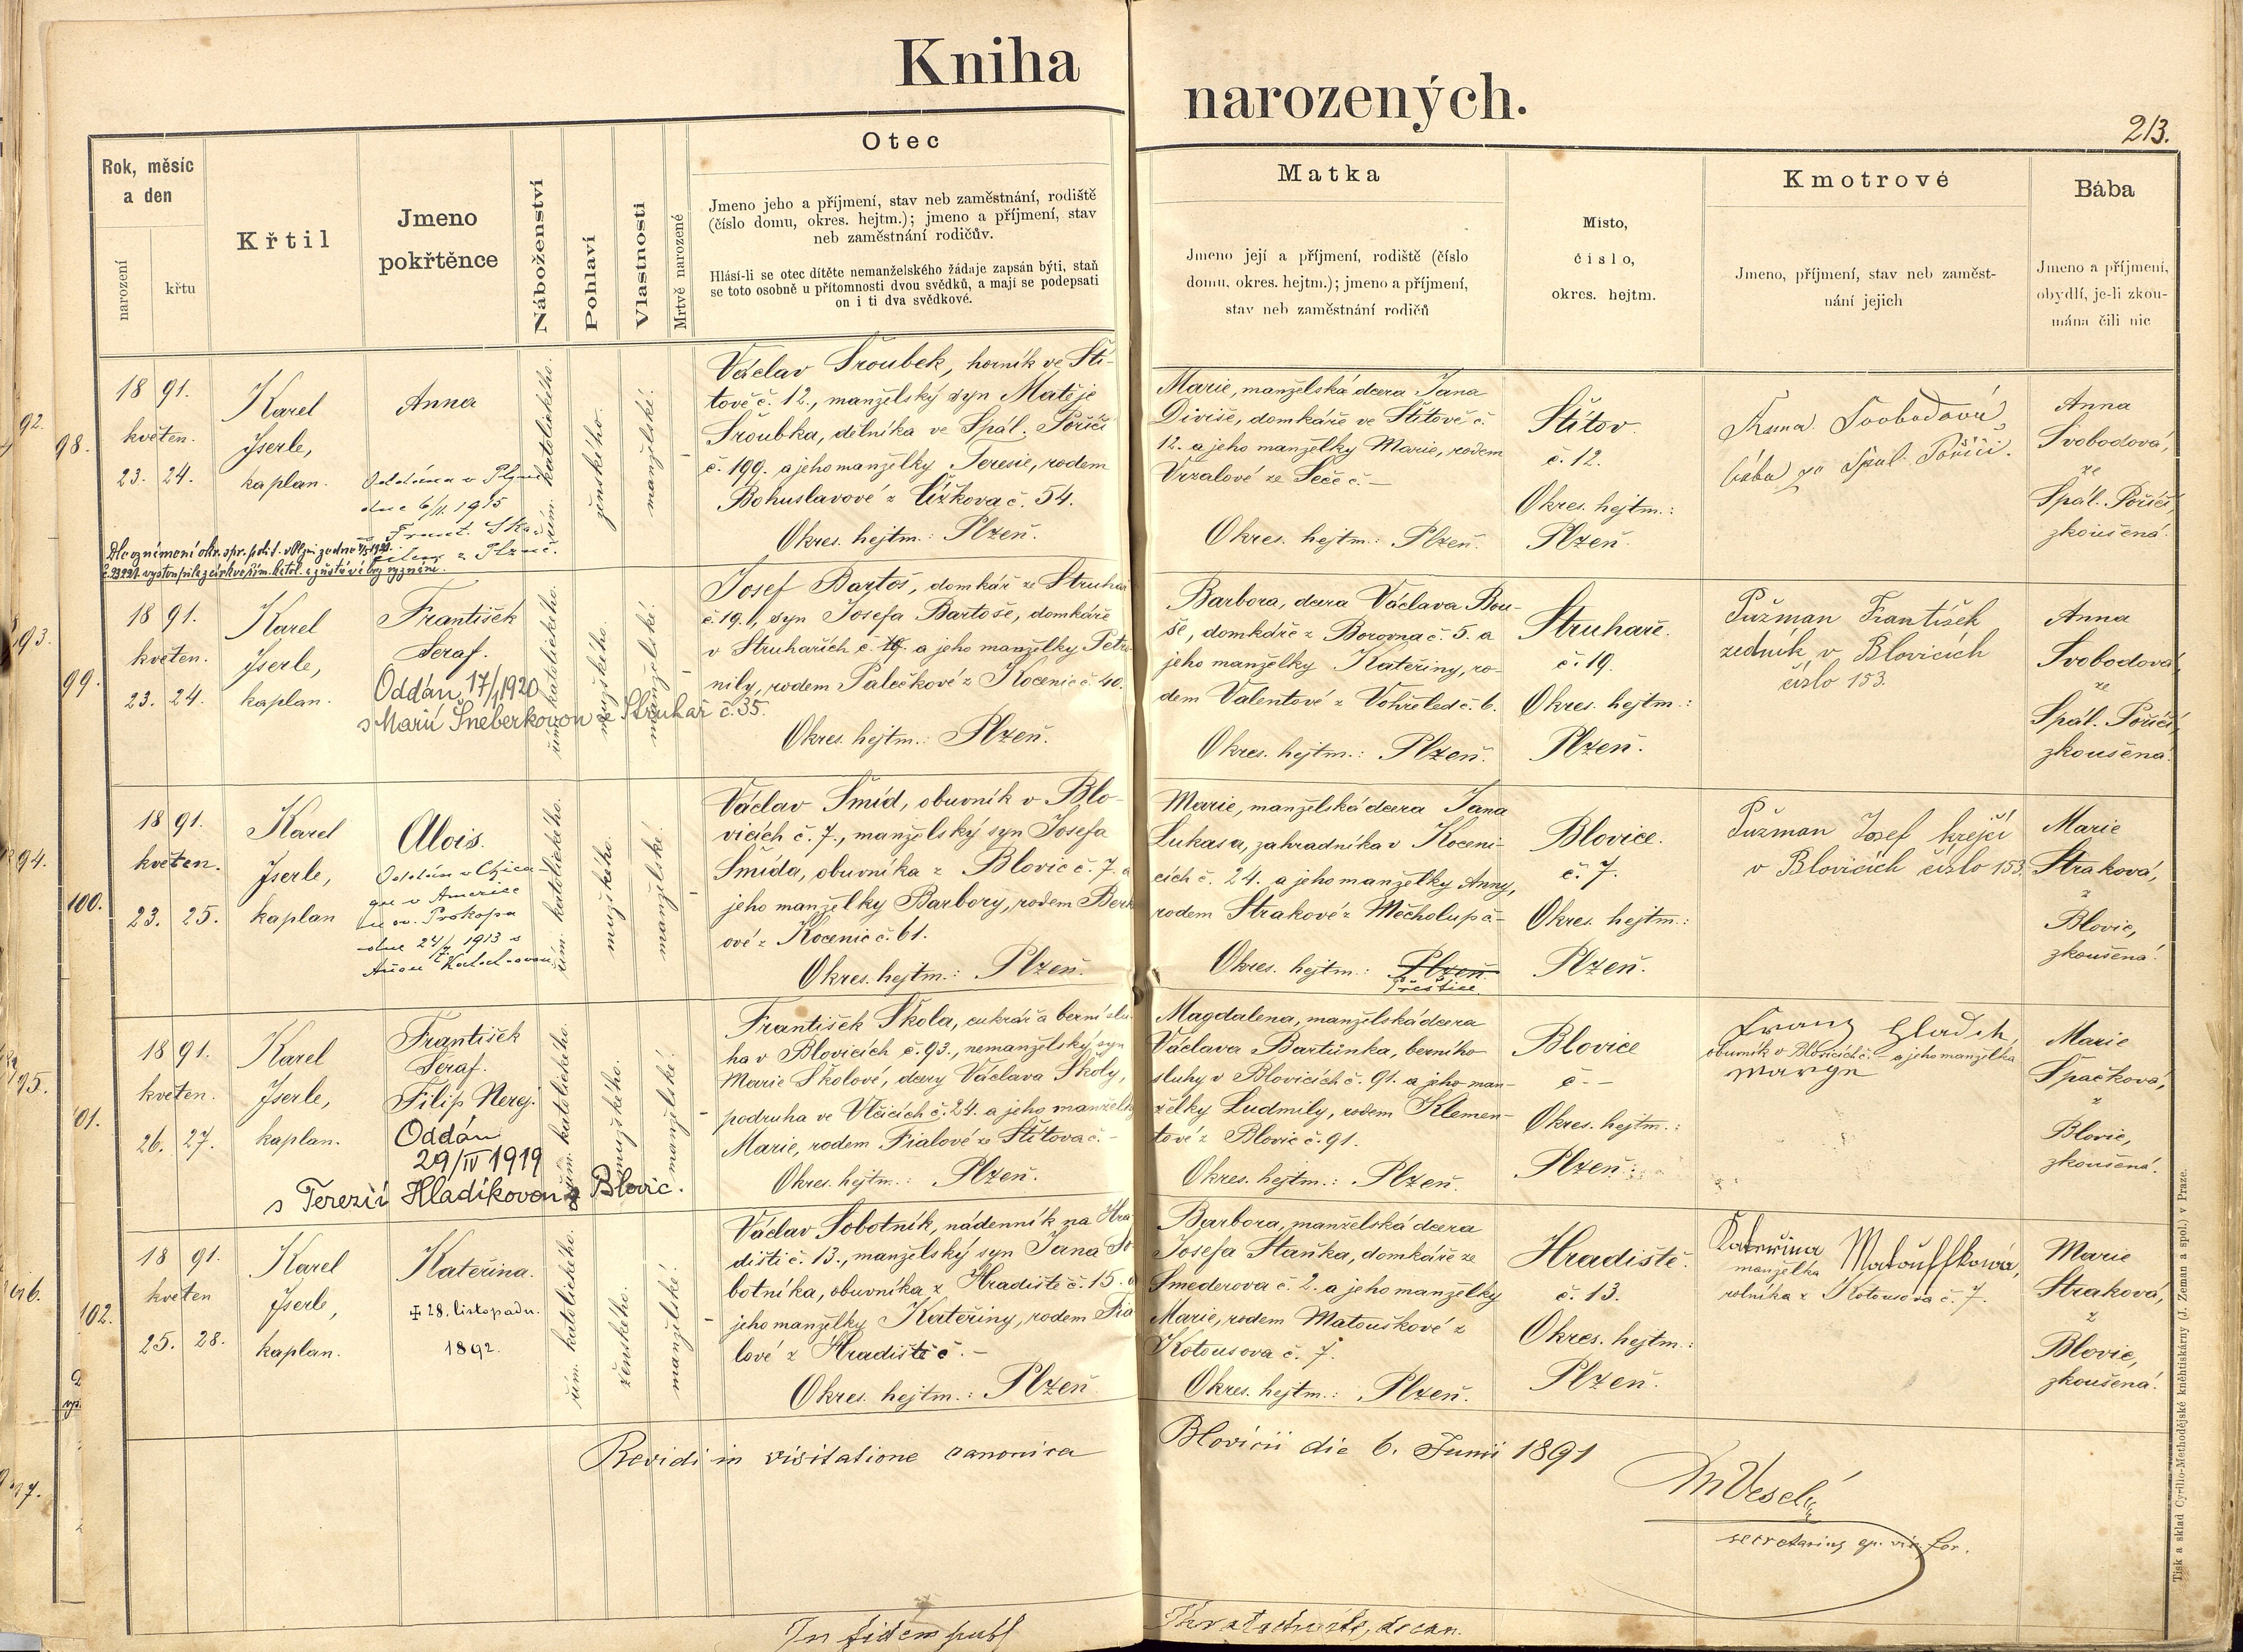 Kniha narozených.
213.
Rok, měsíc a den
narození
křtu
Křtil
Jmeno pokřtěnce
Náboženství
Pohlaví
Vlastnosti
Mrtvě narozené
Otec
Jmeno jeho a příjmení, stav neb zaměstnání, rodiště
(číslo domu, okres. hejtm.); jmeno a příjmení, stav
neb zaměstnání rodičův.
Hlásí-li se otec dítěte nemanželského žádaje zapsán býti, staň
se toto osobně u přítomnosti dvou svědků, a mají se podepsati
on i ti dva svědkové.
Matka
Jmeno její a příjmení, rodiště (číslo
domu, okres. hejtm.); jmeno a příjmení,
stav neb zaměstnání rodičů
Misto,
číslo,
okres. hejtm.
Kmotrové
Jmeno, příjmení, stav neb zaměst-
nání jejich
Bába
Jmeno a příjmení,
obydlí, je-li zkou-
mána čili nic
98.
18 91.
květen.
23. 24.
Karel
Jserle,
kaplan.
Anna
Oddána v Plzni
dne 6/11. 1915
řím. katolického.
ženského.
manželské.
-
Václav Šroubek, horník ve Ští-
tově č. 12., manželský syn Matěje
Šroubka, dělníka ve Spál. Poříčí
č. 199. a jeho manželky Teresie, rodem
Bohuslavové z Čížkova č. 54.
Okres. hejtm.: Plzeň.
Marie, manželská dcera Jana
Diviše, domkáře ve Štítově č.
12. a jeho manželky Marie, rodem
Vrzalové ze Seče č. –
Okres. hejtm.: Plzeň.
Štítov.
č. 12.
Okres. hejtm.:
Plzeň.
Anna Svobodová
bába ze Spál. Poříčí.
Anna
Svobodová,
ze
Spál. Poříčí,
zkoušená.
99.
18 91.
květen.
23. 24.
Karel
Jserle,
kaplan.
František
Seraf.
Oddán 17/1 1920
s Marií Šneberkovou ze Struhař č. 35.
řím. katolického.
mužského.
manželské.
-
Josef Bartoš, domkář ze Struhař
č. 19., syn Josefa Bartoše, domkáře
v Struhařích č. 19. a jeho manželky Petro-
nily, rodem Palečkové z Kocenic č. 40.
Okres. hejtm.: Plzeň.
Barbora, dcera Václava Bou-
še, domkáře z Borovna č. 5. a
jeho manželky Kateřiny, ro-
dem Valentové z Vohřeled č. 6.
Okres. hejtm.: Plzeň.
Struhaře.
č. 19.
Okres. hejtm.:
Plzeň.
Pužman František
zedník v Blovicích
číslo 153.
Anna
Svobodová,
ze
Spál. Poříčí,
zkoušená.
100.
18 91.
květen.
23. 25.
Karel
Jserle,
kaplan
Alois.
Oddán v Chica-
gu v Americe
u sv. Prokopa
řím. katolického.
mužského.
manželské.
-
Václav Šmíd, obuvník v Blo-
vicích č. 7., manželský syn Josefa
Šmída, obuvníka z Blovic č. 7. a
jeho manželky Barbory, rodem Berk-
ové z Kocenic č. 61.
Okres. hejtm.: Plzeň.
Marie, manželská dcera Jana
Lukasa, zahradníka v Koceni-
cích č. 24. a jeho manželky Anny,
rodem Strakové z Měcholup č –
Okres. hejtm.: Plzeň.
Přeštice.
Blovice.
č. 7.
Okres. hejtm.:
Plzeň.
Pužman Josef krejčí
v Blovicích číslo 153.
Marie
Straková,
z
Blovic,
zkoušená.
101.
18 91.
květen.
26. 27.
Karel
Jserle,
kaplan.
František
Seraf.
Filip Nerej.
Oddán
29/IV 1919
s Terezií Hladíkovou z Blovic.
řím. katolického.
mužského.
manželské.
-
František Škola, cukrář a berní slu-
ha v Blovicích č. 93., nemanželský syn
Marie Školové, dcery Václava Školy,
podruha ve Vlčicích č. 24. a jeho manželky
Marie, rodem Fialové ze Štítova č. –
Okres. hejtm.: Plzeň.
Magdalena, manželská dcera
Václava Bartůnka, berního
sluhy v Blovicích č. 91. a jeho man-
želky Ludmily, rodem Klemen-
tové z Blovic č. 91.
Okres. hejtm.: Plzeň.
Blovice
č –
Okres. hejtm.:
Plzeň.
Franz Hladik,
obuvník v Blovicích č. – a jeho manželka
Marye
Marie
Špačková,
z
Blovic,
zkoušená.
102.
18 91.
květen
25. 28.
Karel
Jserle,
kaplan.
Kateřina.
‡ 28. listopadu.
1892.
řím. katolického.
ženského.
manželské.
-
Václav Sobotník, nádenník na Hra-
dišti č. 13., manželský syn Jana So-
botníka, obuvníka z Hradiště č. 15. a
jeho manželky Kateřiny, rodem Fia-
lové z Hradiště č. –
Okres. hejtm.: Plzeň.
Barbora, manželská dcera
Josefa Staňka, domkáře ze
Smederova č. 2. a jeho manželky
Marie, rodem Matouškové z
Kotousova č. 7.
Okres. hejtm.: Plzeň.
Hradiště.
č. 13.
Okres. hejtm.:
Plzeň.
Kateřina Matouffkowá,
manželka
rolníka z Kotousova č. 7.
Marie
Straková,
z
Blovic,
zkoušená.
Revidi in visitatione canonica Blovicii die 6. Junii 1891
Veselý
secretarius
In fidem publ
decan.
Tisk a sklad Cyrillo-Methodějské kněhtiskárny (J. Zeman a spol.) v Praze.